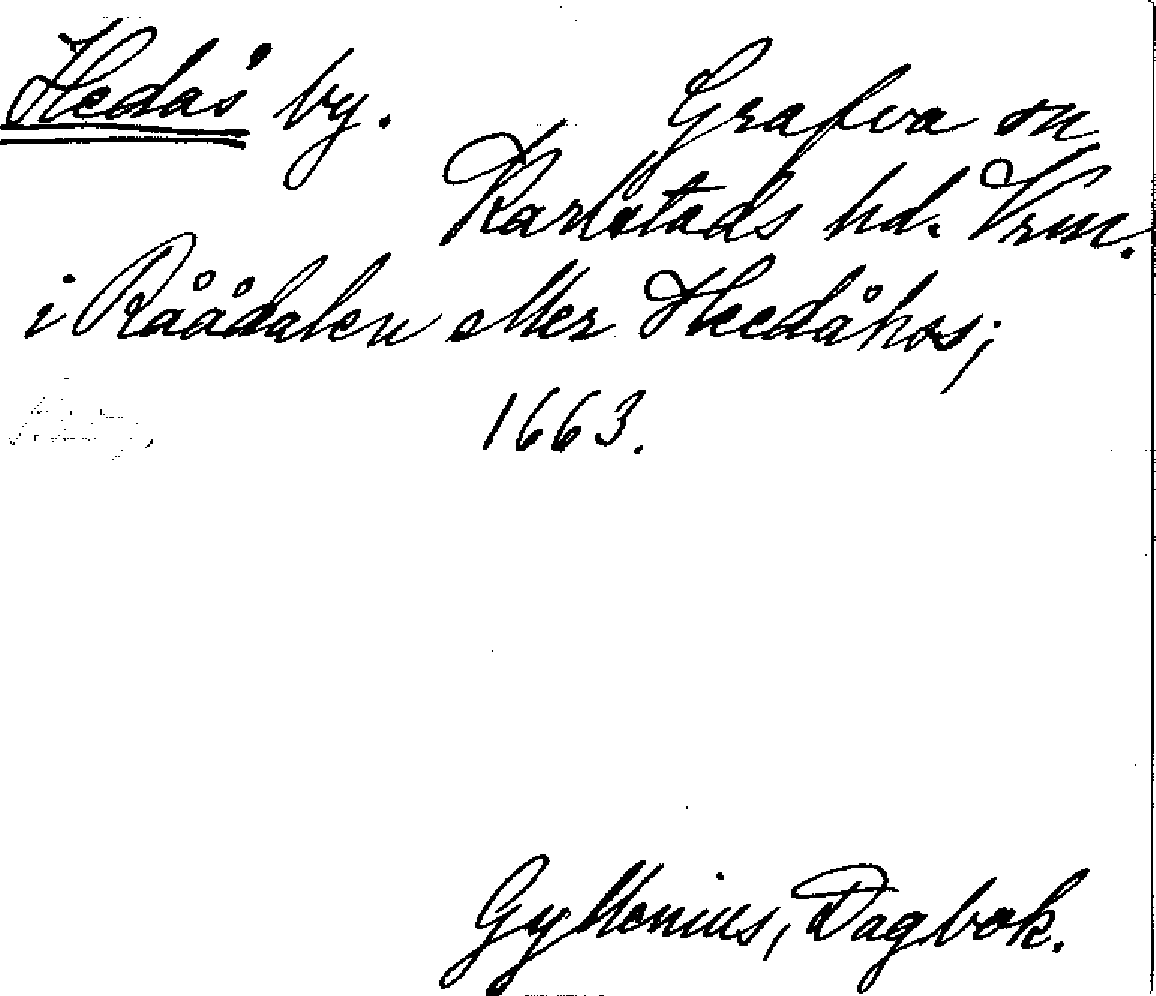 Hedås by. Grafva sn
Karlstads hd. Vrm.
i Råådalen eller Heedåhos;
1663.
Gyllenius, Dagbok.